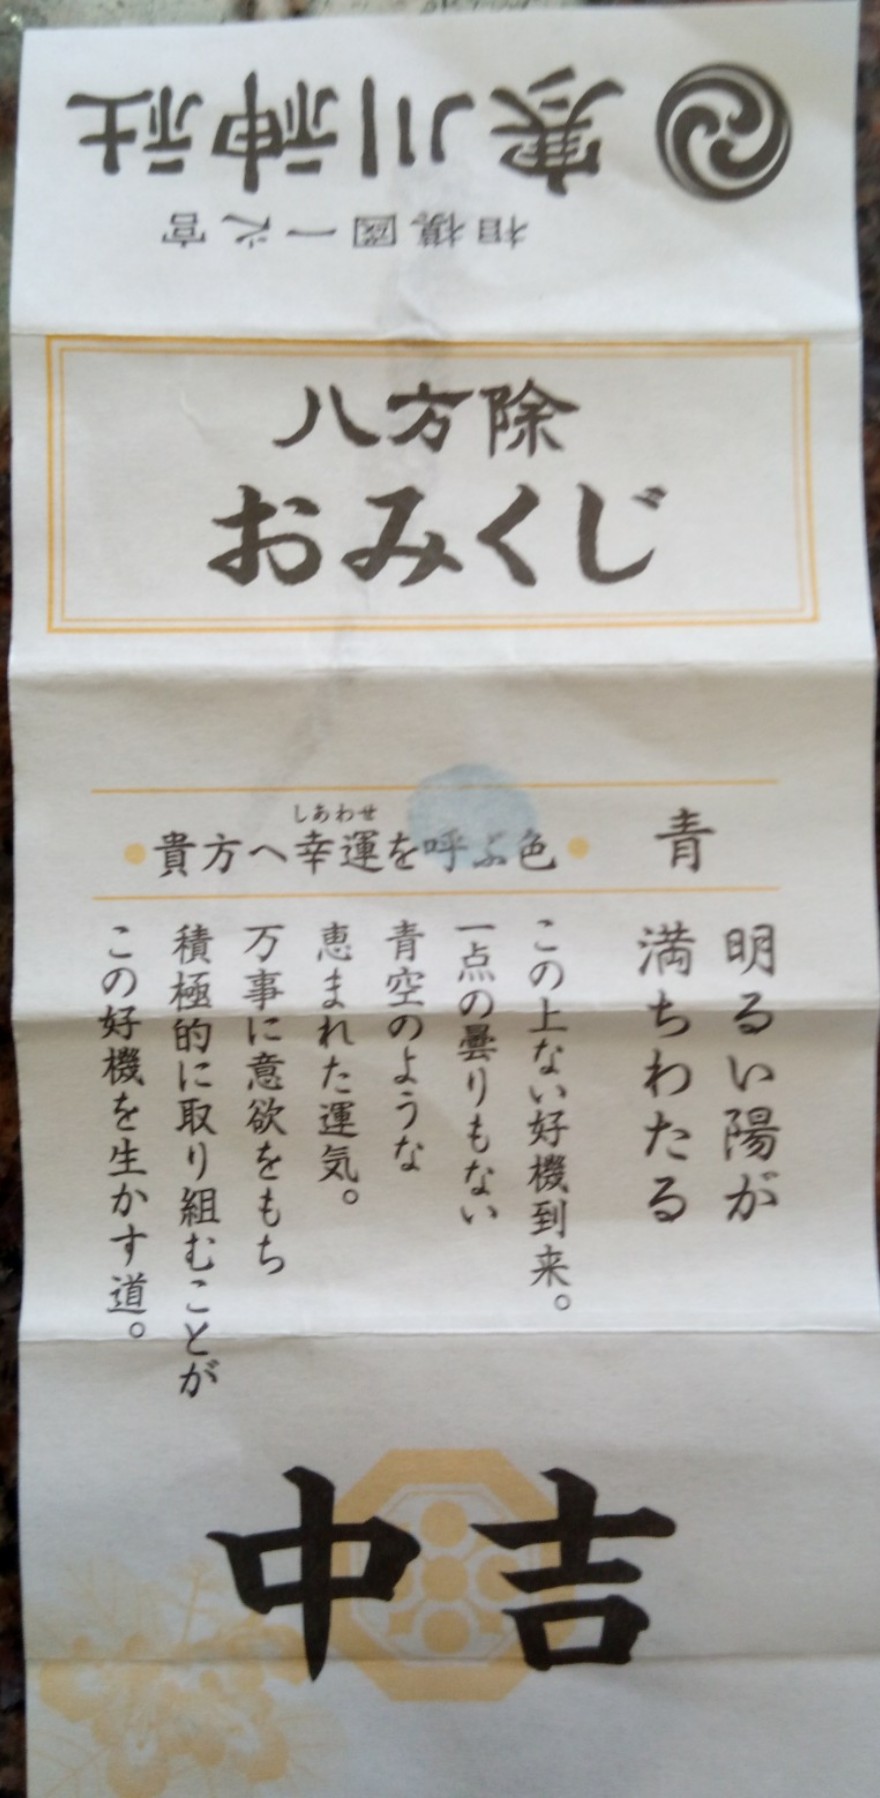 寒川神社
相模國一之宮
八方除
おみくじ
貴方へ幸運を呼ぶ色
しあわせ
青
明るい陽が
満ちわたる
この上ない好機到来。
一点の曇りもない
青空のような
恵まれた運気。
万事に意欲をもち
積極的に取り組むことが
この好機を生かす道。
中吉